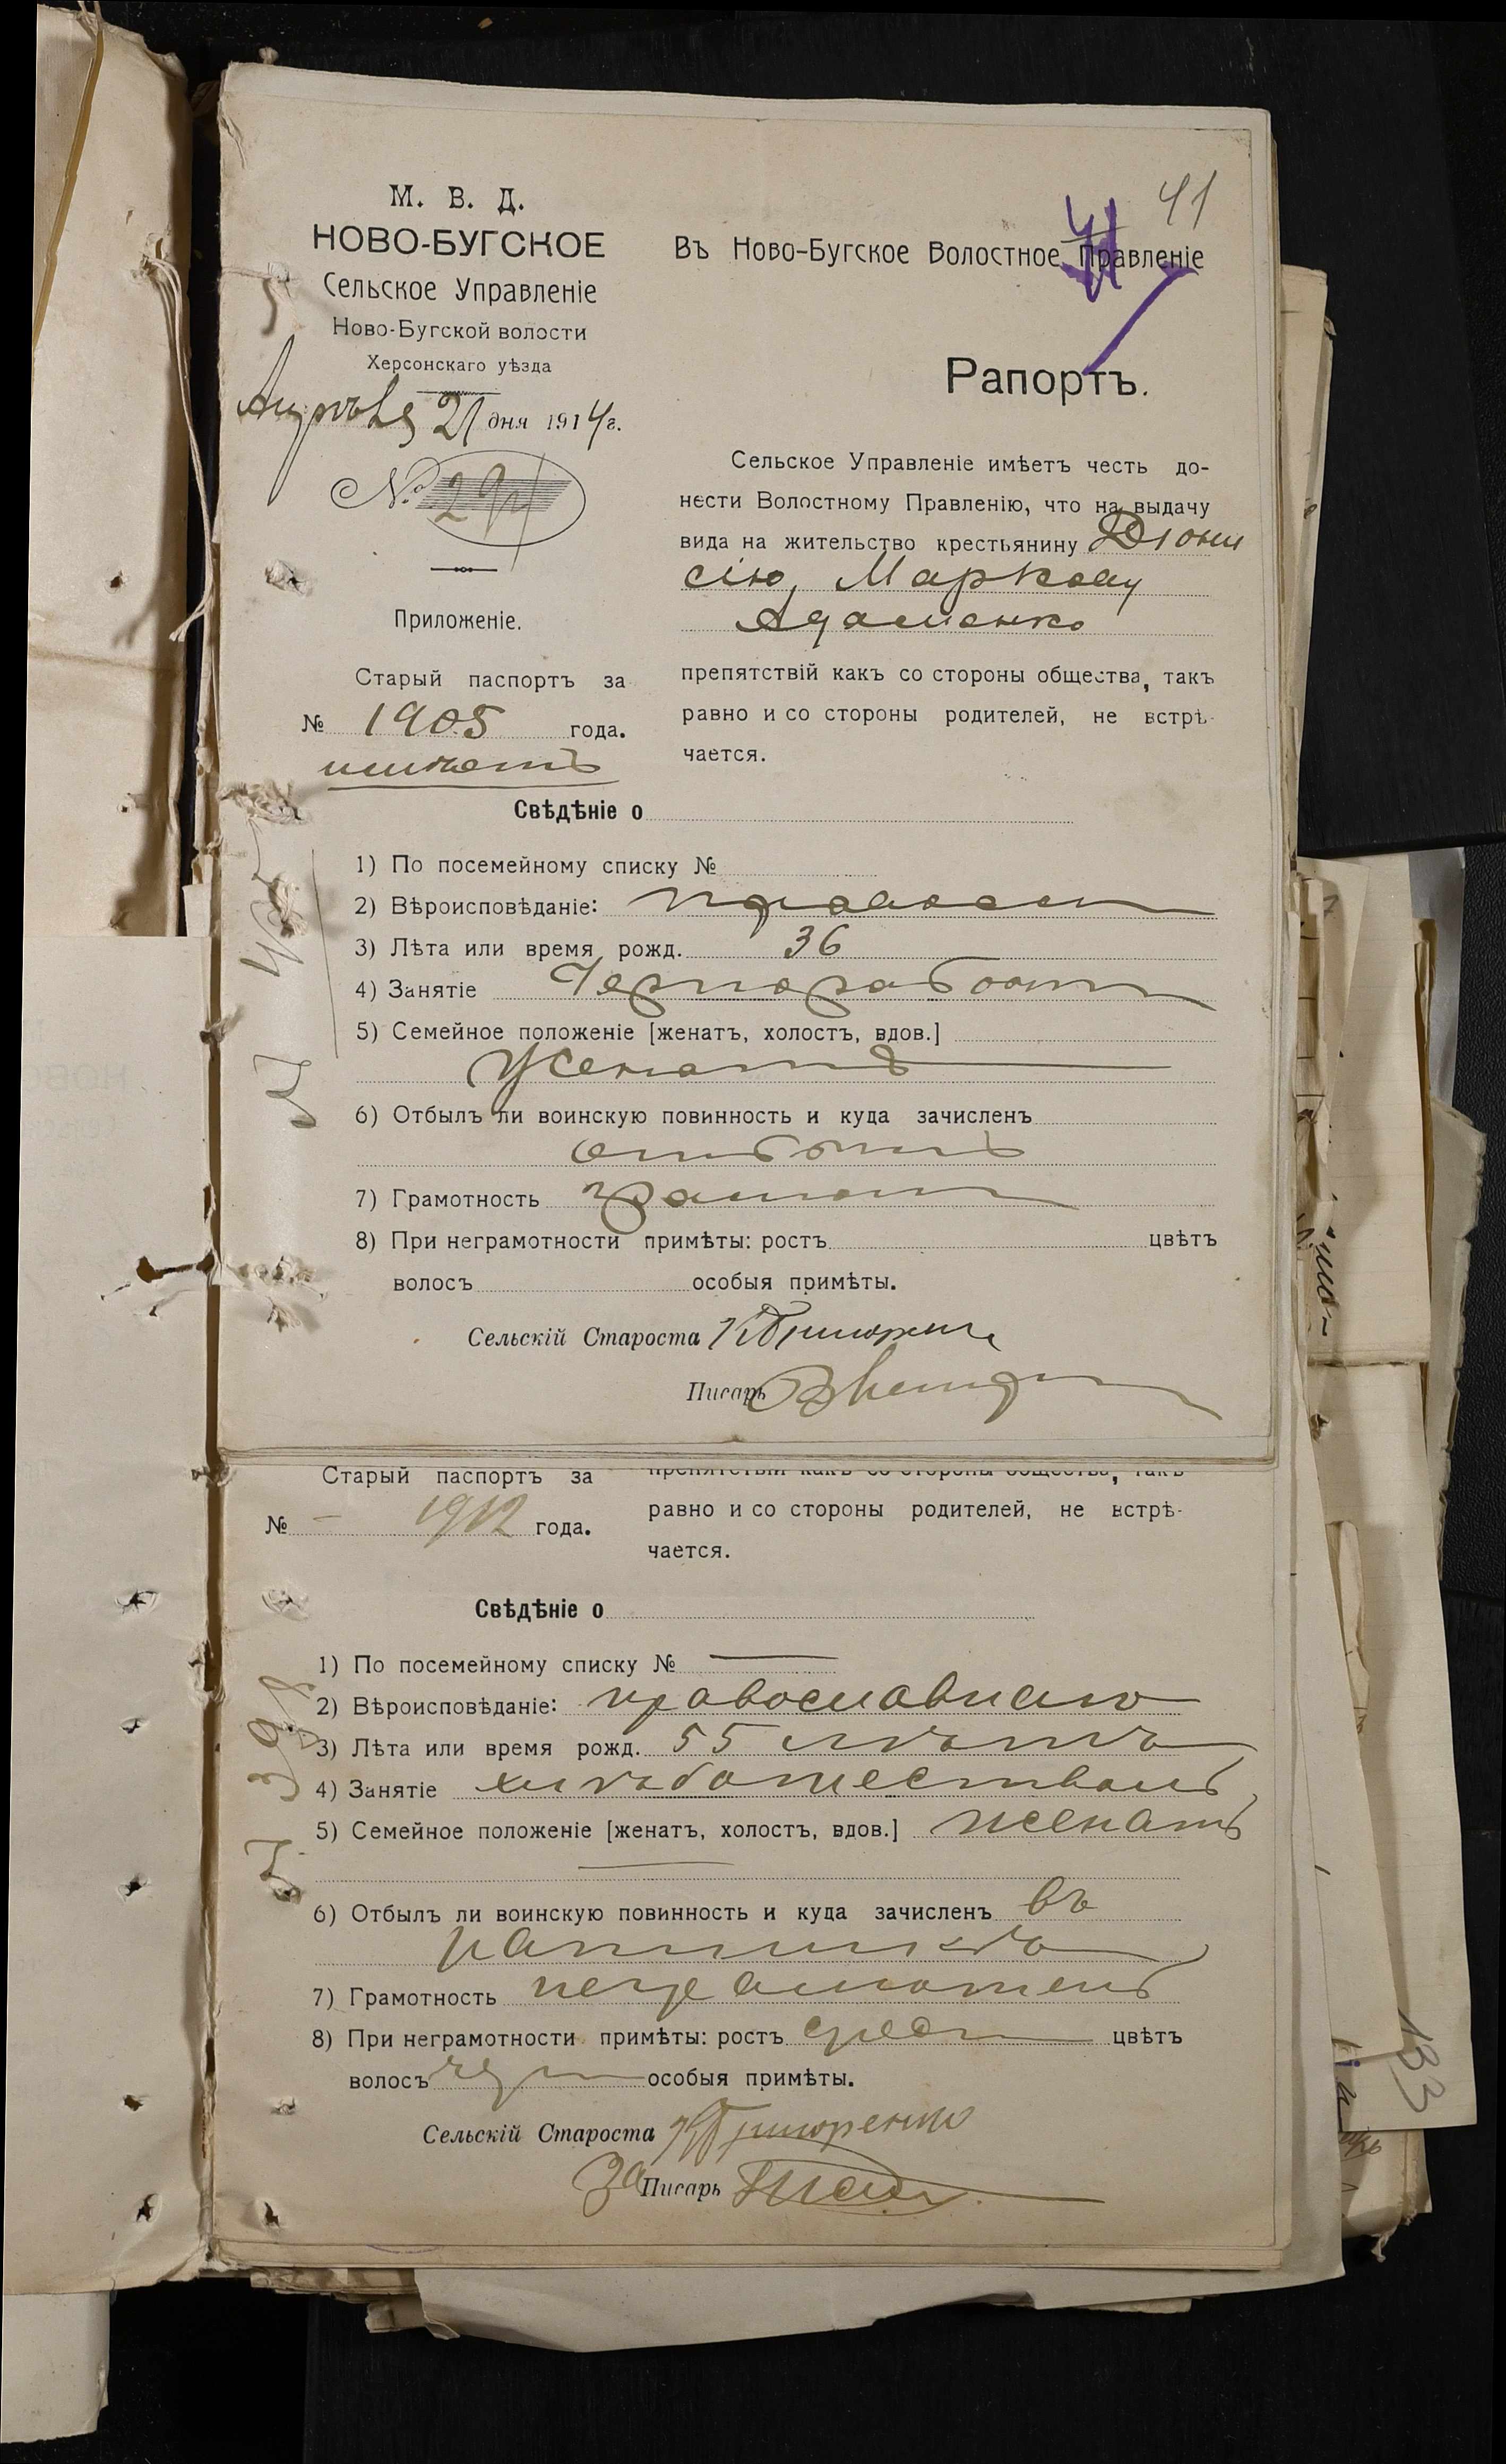 41
41
М. В. Д.
НОВО-БУГСКОЕ
Сельское Управленіе
Ново-Бугской волости
Херсонскаго уѣзда
Апрѣля 21 дня 1914 г.
№ 294
Приложеніе.
Старый паспортъ за
№ 1905 года.
Въ Ново-Бугское Волостное Правленіе
Рапортъ.
Сельское Управленіе имѣетъ честь до-
нести Волостному Правленію, что на выдачу
вида на жительство крестьянину Діони
сію, Маркову
Адаменко
препятствій какъ со стороны общества, такъ
равно и со стороны родителей, не встрѣ-
чается.
Свѣдѣніе о
1) По посемейному списку №
2) Вѣроисповѣданіе: православн
3) Лѣта или время рожд. 36
4) Занятіе Чернорабоч
5) Семейное положеніе [женатъ, холостъ, вдов.]
Женатъ
6) Отбылъ ли воинскую повинность и куда зачисленъ
отбылъ
7) Грамотность грамотн
8) При неграмотности примѣты: ростъ цвѣтъ
волосъ особыя примѣты.
Сельскій Староста
Писарь
Старый паспортъ за
№ — 1912 года.
препятствій какъ со стороны общества, такъ
равно и со стороны родителей, не встрѣ-
чается.
Свѣдѣніе о
1) По посемейному списку № —
2) Вѣроисповѣданіе: православнаго
3) Лѣта или время рожд. 55 лѣтъ
4) Занятіе хлѣбопашествомъ
5) Семейное положеніе [женатъ, холостъ, вдов.] женатъ
6) Отбылъ ли воинскую повинность и куда зачисленъ въ
7) Грамотность неграмотенъ
8) При неграмотности примѣты: ростъ средн цвѣтъ
волосъ особыя примѣты.
Сельскій Староста Григоренко
За Писарь
133